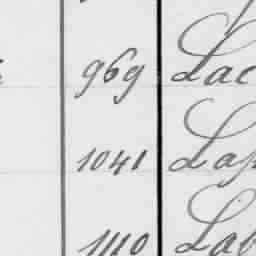 969 Lac
1041 Lap
1110 Lab